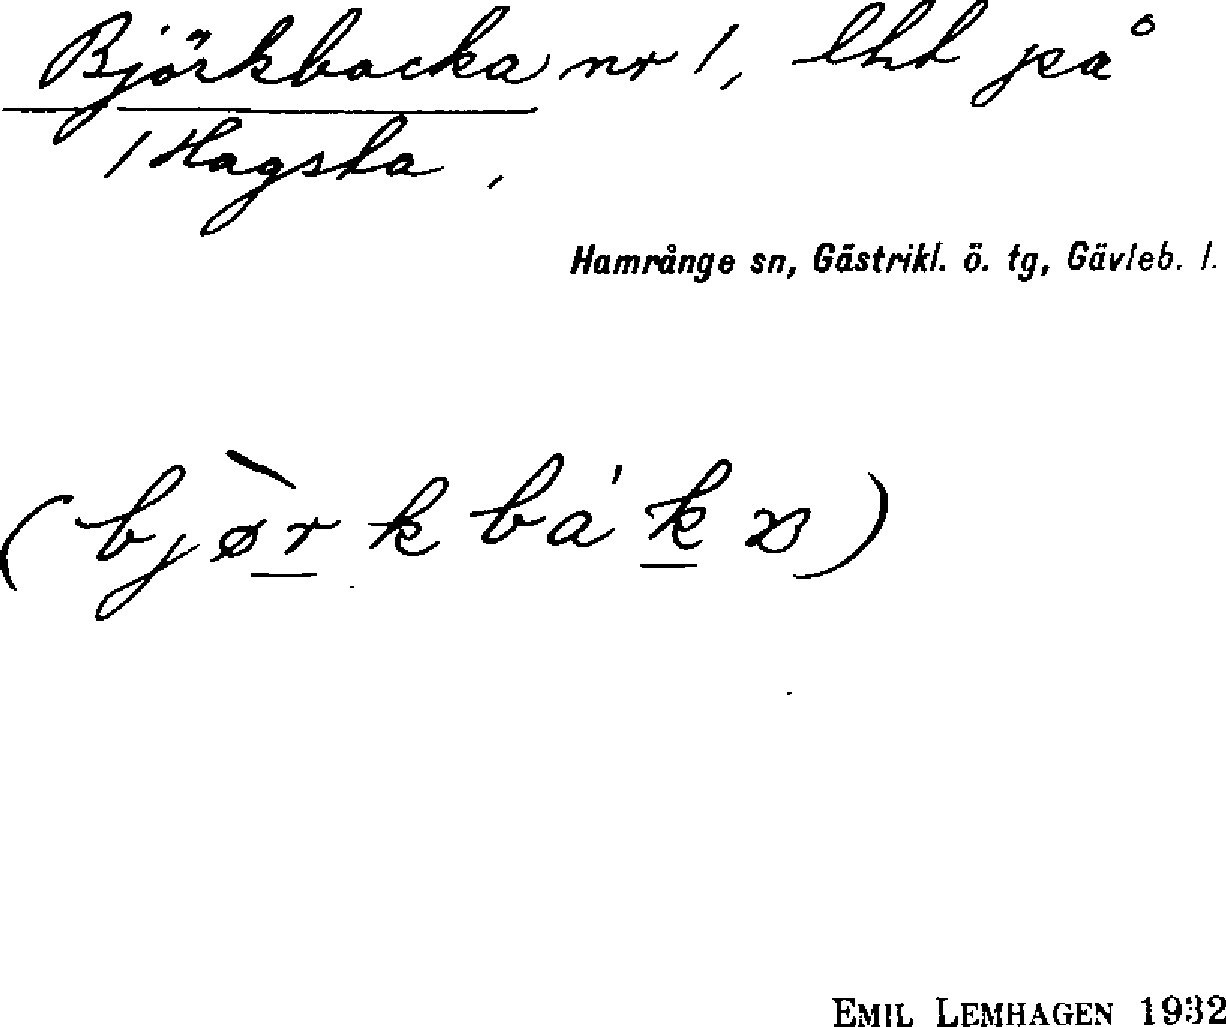 Björkbacka nr 1, lht på
1 Hagsta,
Hamrånge sn, Gästrikl. ö. tg, Gävleb. l.
(bjø̀rk bák ɐ)
EMIL LEMHAGEN 1932